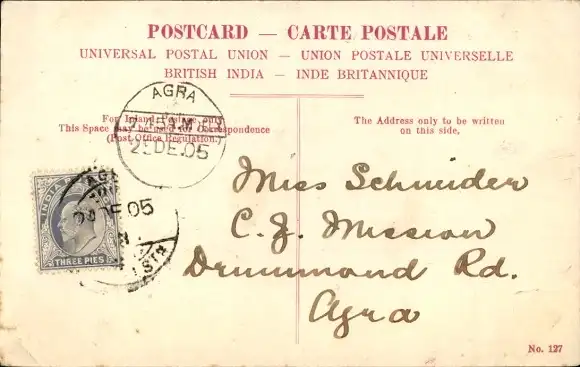 POSTCARD — CARTE POSTALE
UNIVERSAL POSTAL UNION — UNION POSTALE UNIVERSELLE
BRITISH INDIA — INDE BRITANNIQUE
AGRA
For Inland Postage only
This Space may be used for Correspondence
(Post Office Regulation.)
The Address only to be written
on this side.
DE.05
INDIA
THREE PIES
AG
DE 05
Miss Schneider
C. J. Mission
Drummond Rd.
Agra
No. 127